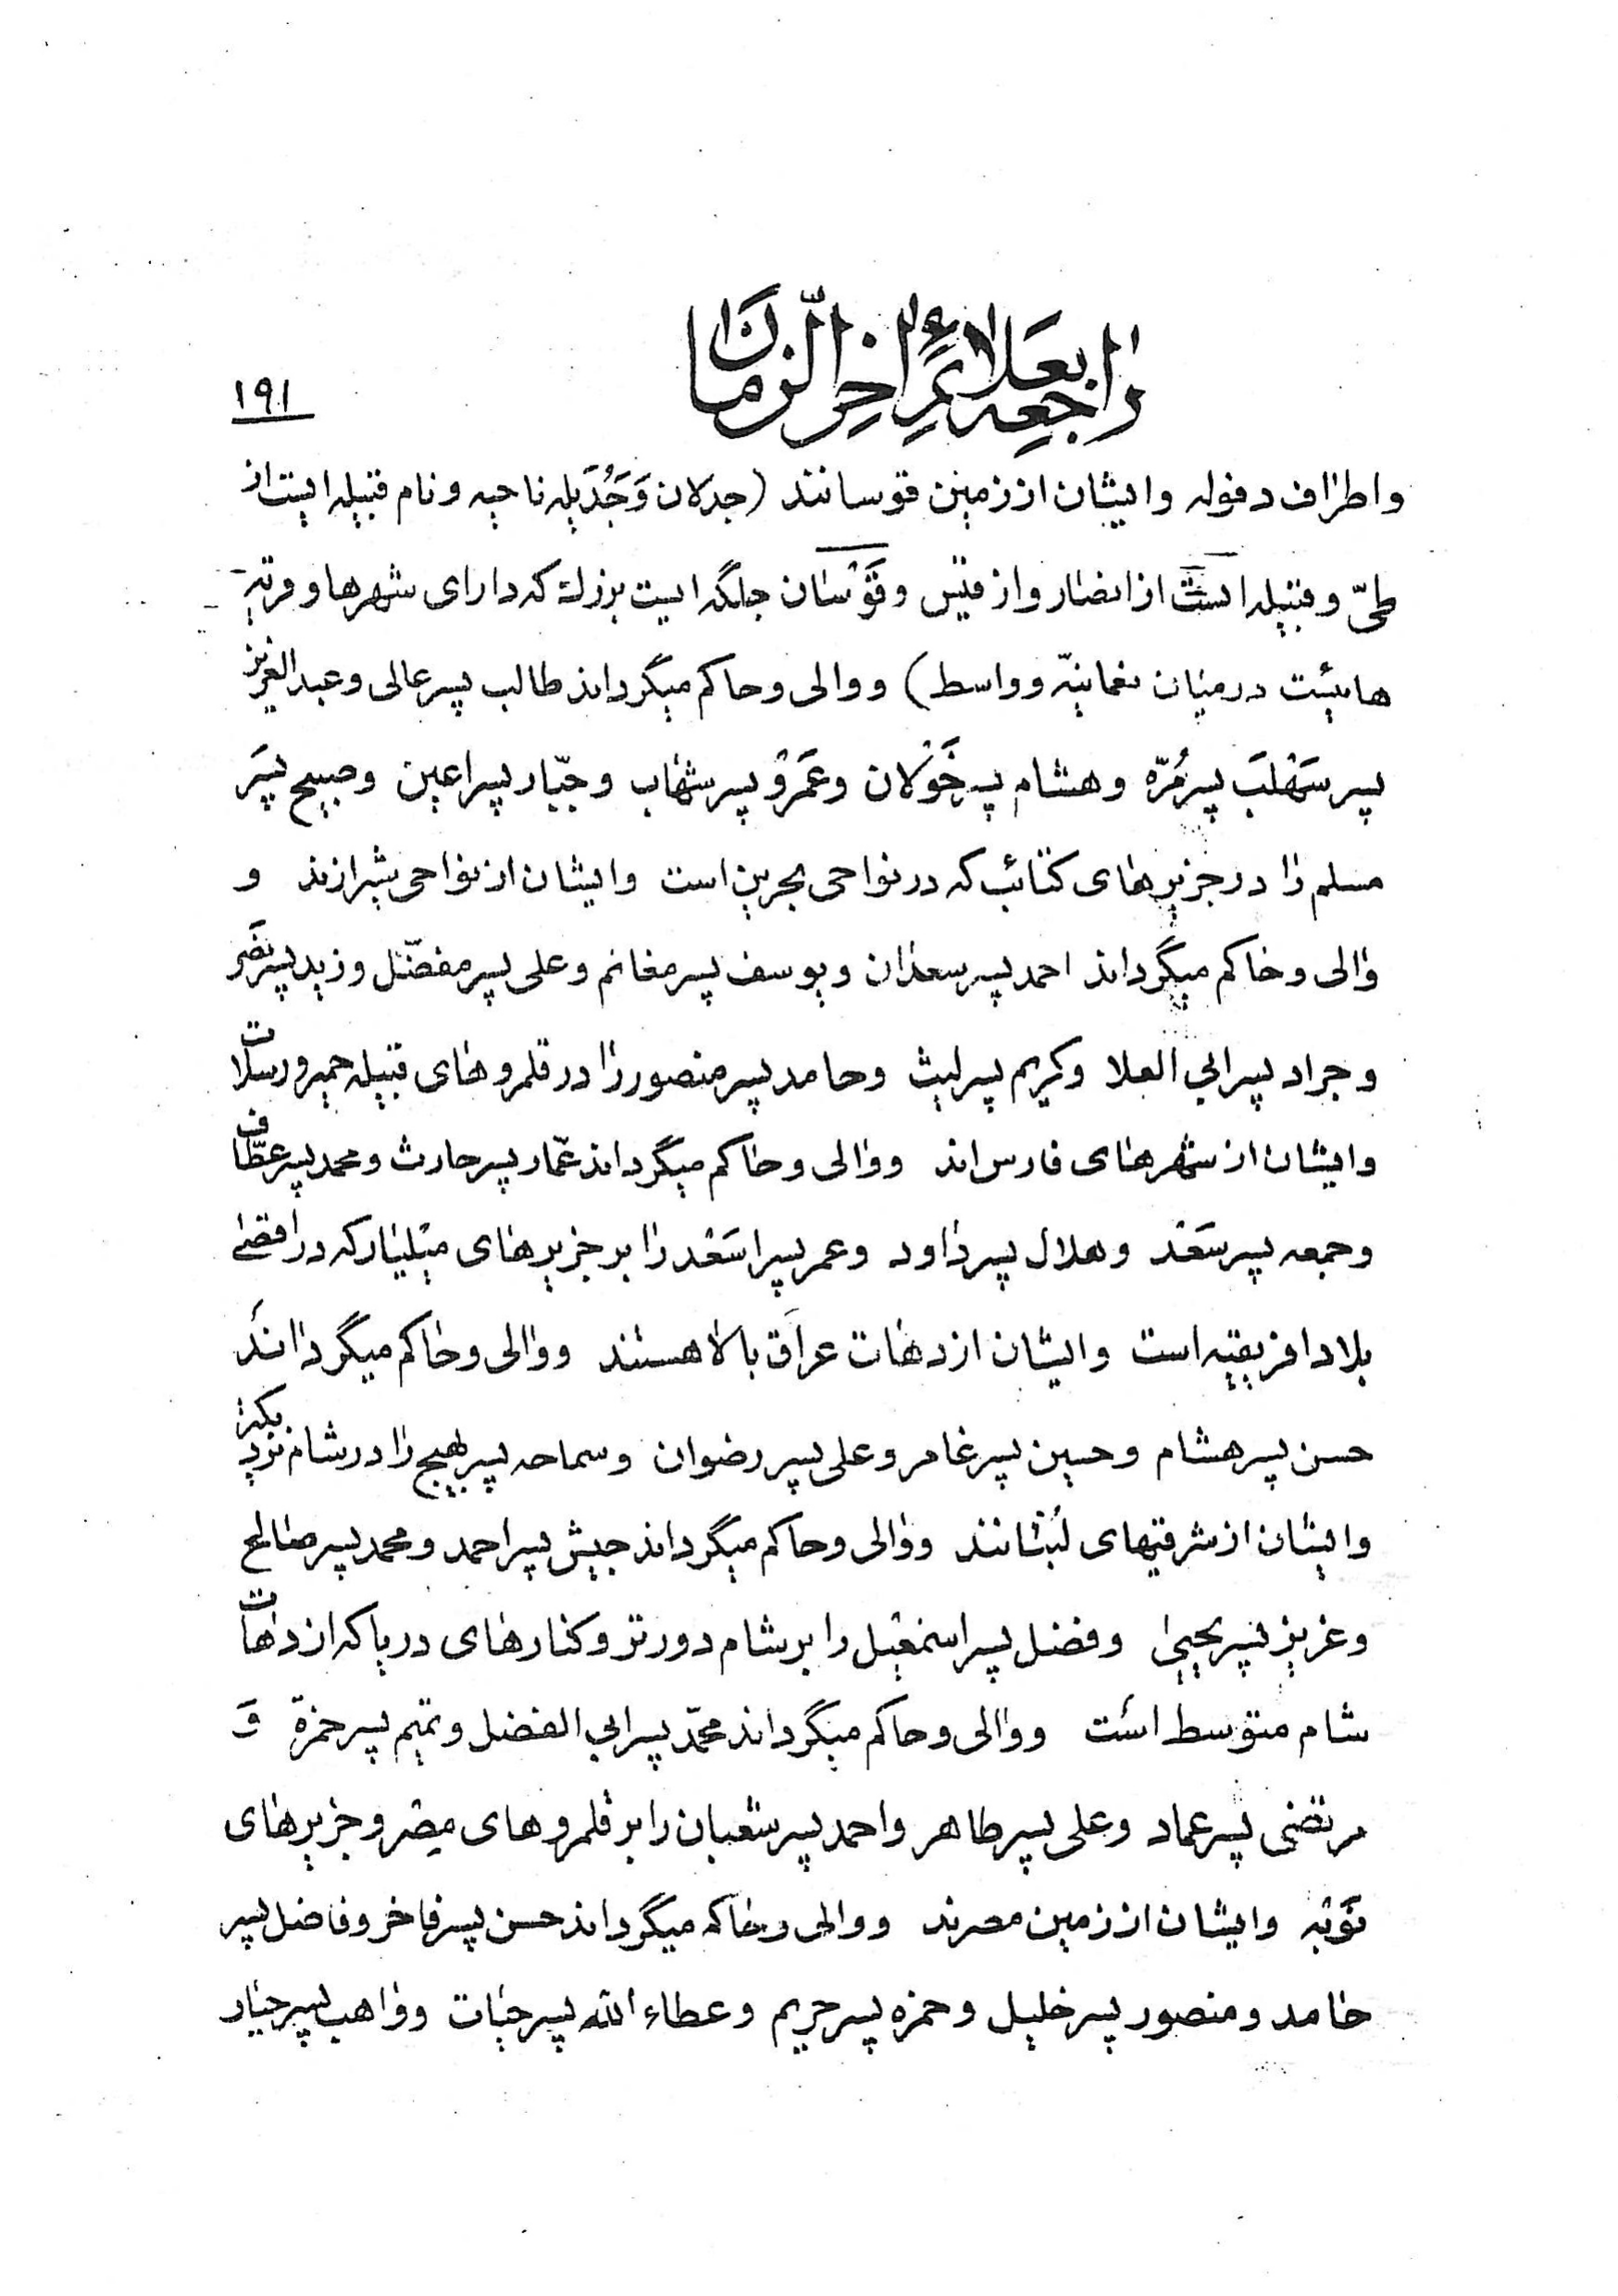 راجعه بعلائم اخر الزمان
۱۹۱
و اطراف دفوله و ایشان از زمین قوسانند (جدلان وَجُدَیله ناحیه و نام قبیله ایست از
طیّ و قبیله ایست از انصار و از قیس و قَوْسان جلگه ایست بزرك که دارای شهرها و قریه
هائیست در میان نعمانیّه و واسط) و والی و حاکم میگرداند طالب پسر عالی و عبدالعزیز
پسر سَهْلَب پسر مُرّه و هشام پسر خَوْلان و عَمَرْو پسر شهاب و جبّار پسر اعین و صبیح پسَر
مسلم را در جزیرهای کتائب که در نواحی بحرین است و ایشان از نواحی شیرازند و
والی و حاکم میگرداند احمد پسر سعدان و یوسف پسر مغانم و علی پسر مفضّل و زید پسر نضَر
و جراد پسر ابی العلا و کریم پسر لیث و حامد پسر منصور را در قلمروهای قبیله حمیر و رسلات
و ایشان از شهرهای فارس اند و والی و حاکم میگرداند عمّار پسر حارث و محمد پسر عطّاف
و جمعه پسر سَعْد و هلال پسر داود و عمر پسر اسَعْد را بر جزیرهای میلیبار که در اقصی
بلاد افریقیه است و ایشان از دهات عراق بالا هستند و والی و حاکم میگردانَد
حسن پسر هشام و حسین پسر غامر و علی پسر رضوان و سماحه پسر بهیج را در شام نزدیکتر
و ایشان از شرقیهای لُبْنانند و والی و حاکم میگرداند جیش پسر احمد و محمد پسر صالح
و عزیز پسر یحیی و فضل پسر اسمعیل را بر شام دورتر و کنارهای دریا که از دهات
شام متوسط است و والی و حاکم میگرداند محمّد پسر ابی الفضل و تمیم پسر حمزة وَ
مرتضی پسر عماد و علی پسر طاهر و احمد پسر شعبان را بر قلمروهای مصْر و جزیرهای
نَوْبَه و ایشان از زمین مصرند و والی و حاکم میگرداند حسن پسر فاخر و فاضل پسر
حامد و منصور پسر خلیل و حمزه پسر حریم و عطاء الله پسر حیات و واهب پسر حیار